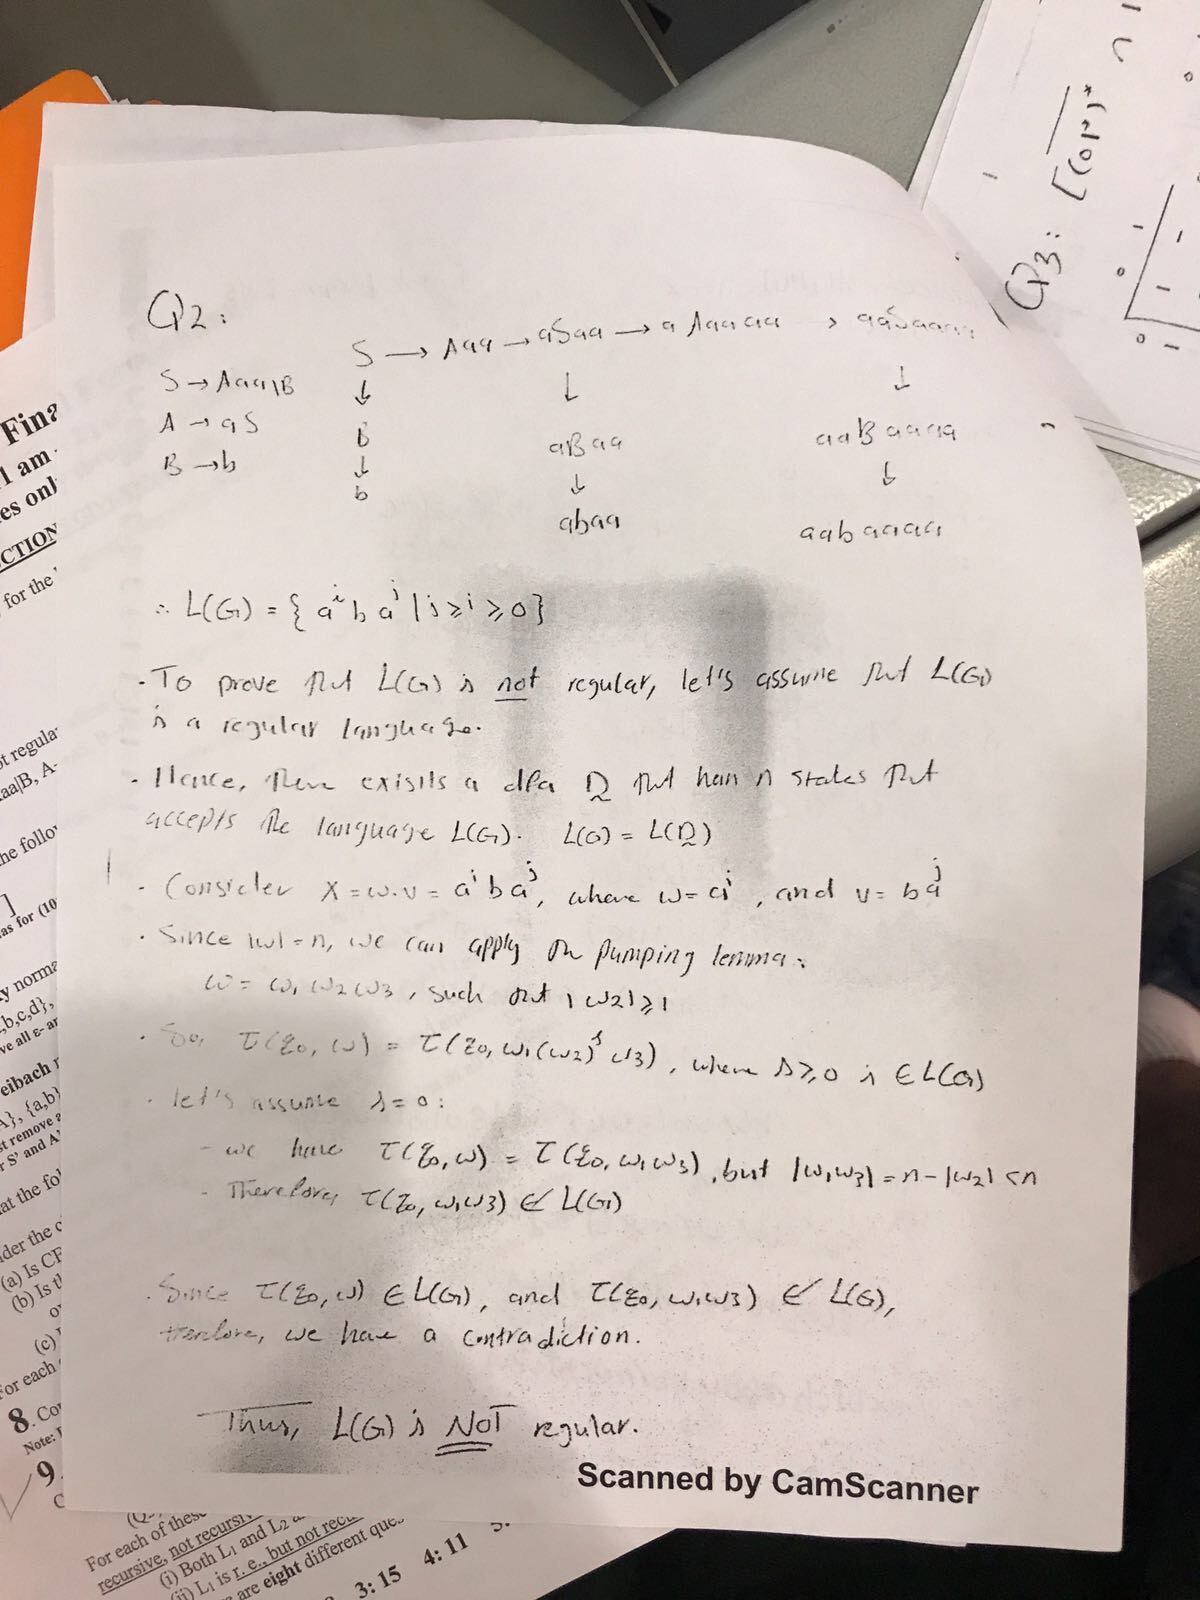 Q2:
S → Aaa → aSaa → aAaaaa → aaSaaaa
S → Aaa|B
A → aS
B → b
↓ ↓ ↓
B aBaa aaBaaaa
↓ ↓ ↓
b abaa aabaaaa
∴ L(G) = { aⁱ b aʲ | j ≥ i ≥ 0 }
· To prove that L(G) is not regular, let's assume that L(G)
is a regular language.
· Hence, there exists a dfa D that has n states that
accepts the language L(G). L(G) = L(D)
· Consider x = w.v = aⁱ b aʲ, where w = aⁱ, and v = b aʲ
· Since |w| = n, we can apply the pumping lemma:
w = w₁ w₂ w₃, such that |w₂| ≥ 1
· So, τ(q₀, w) = τ(q₀, w₁(w₂)ˢ w₃), where s ≥ 0 is ∈ L(G)
· let's assume s = 0:
- we have τ(q₀, w) = τ(q₀, w₁w₃), but |w₁w₃| = n - |w₂| < n
- Therefore, τ(q₀, w₁w₃) ∉ L(G)
· Since τ(q₀, w) ∈ L(G), and τ(q₀, w₁w₃) ∉ L(G),
therefore, we have a contradiction.
Thus, L(G) is NOT regular.
Scanned by CamScanner
Q3: [(01)*
1 am
es only
CTION
for the
aa|B, A-
the follo
]
as for (10
b,c,d},
eibach
}, {a,b}
r S' and A'
at the fol
der the c
(a) Is CF
(b) Is t
(c)
For each
8. Co
Note:
9
For each of these
recursive, not recursiv
(i) Both L₁ and L₂
(ii) L₁ is r. e., but not recu
are eight different que
3: 15 4: 11